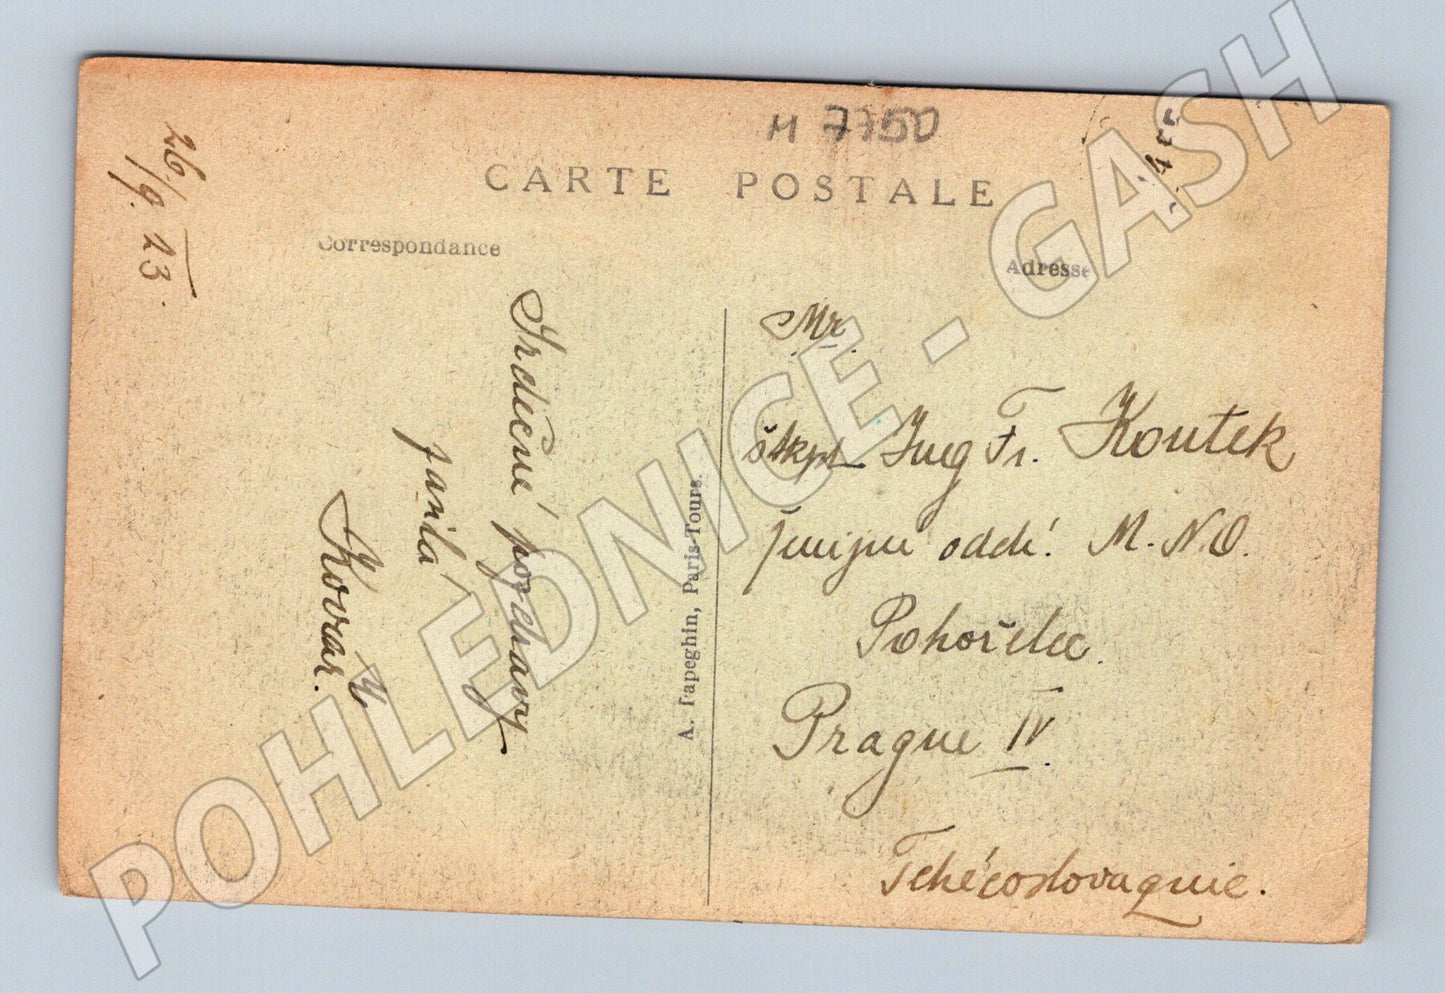 M 7750
CARTE POSTALE
Correspondance
Adresse
26/9. 23.
Srdečné pozdravy
Kovář
Mr.
škpt. Ing Fr. Koutek
oddě. M.N.O.
Pohořelec.
Prague IV.
Tchécoslovaquie.
A. Papeghin, Paris-Tours.
POHLEDNICE - GASH